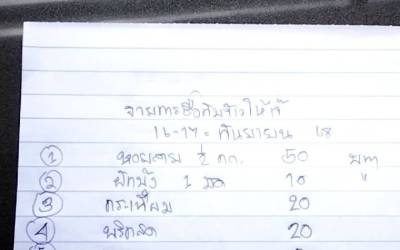 จ่ายการซื้อกับข้าวให้เจ้
16-17 = กันยายน 68
① หอยลาย 2 กก. 50 บาท
② ผักบุ้ง 1 มัด 10 "
③ กระเทียม 20
④ พริกสด 20